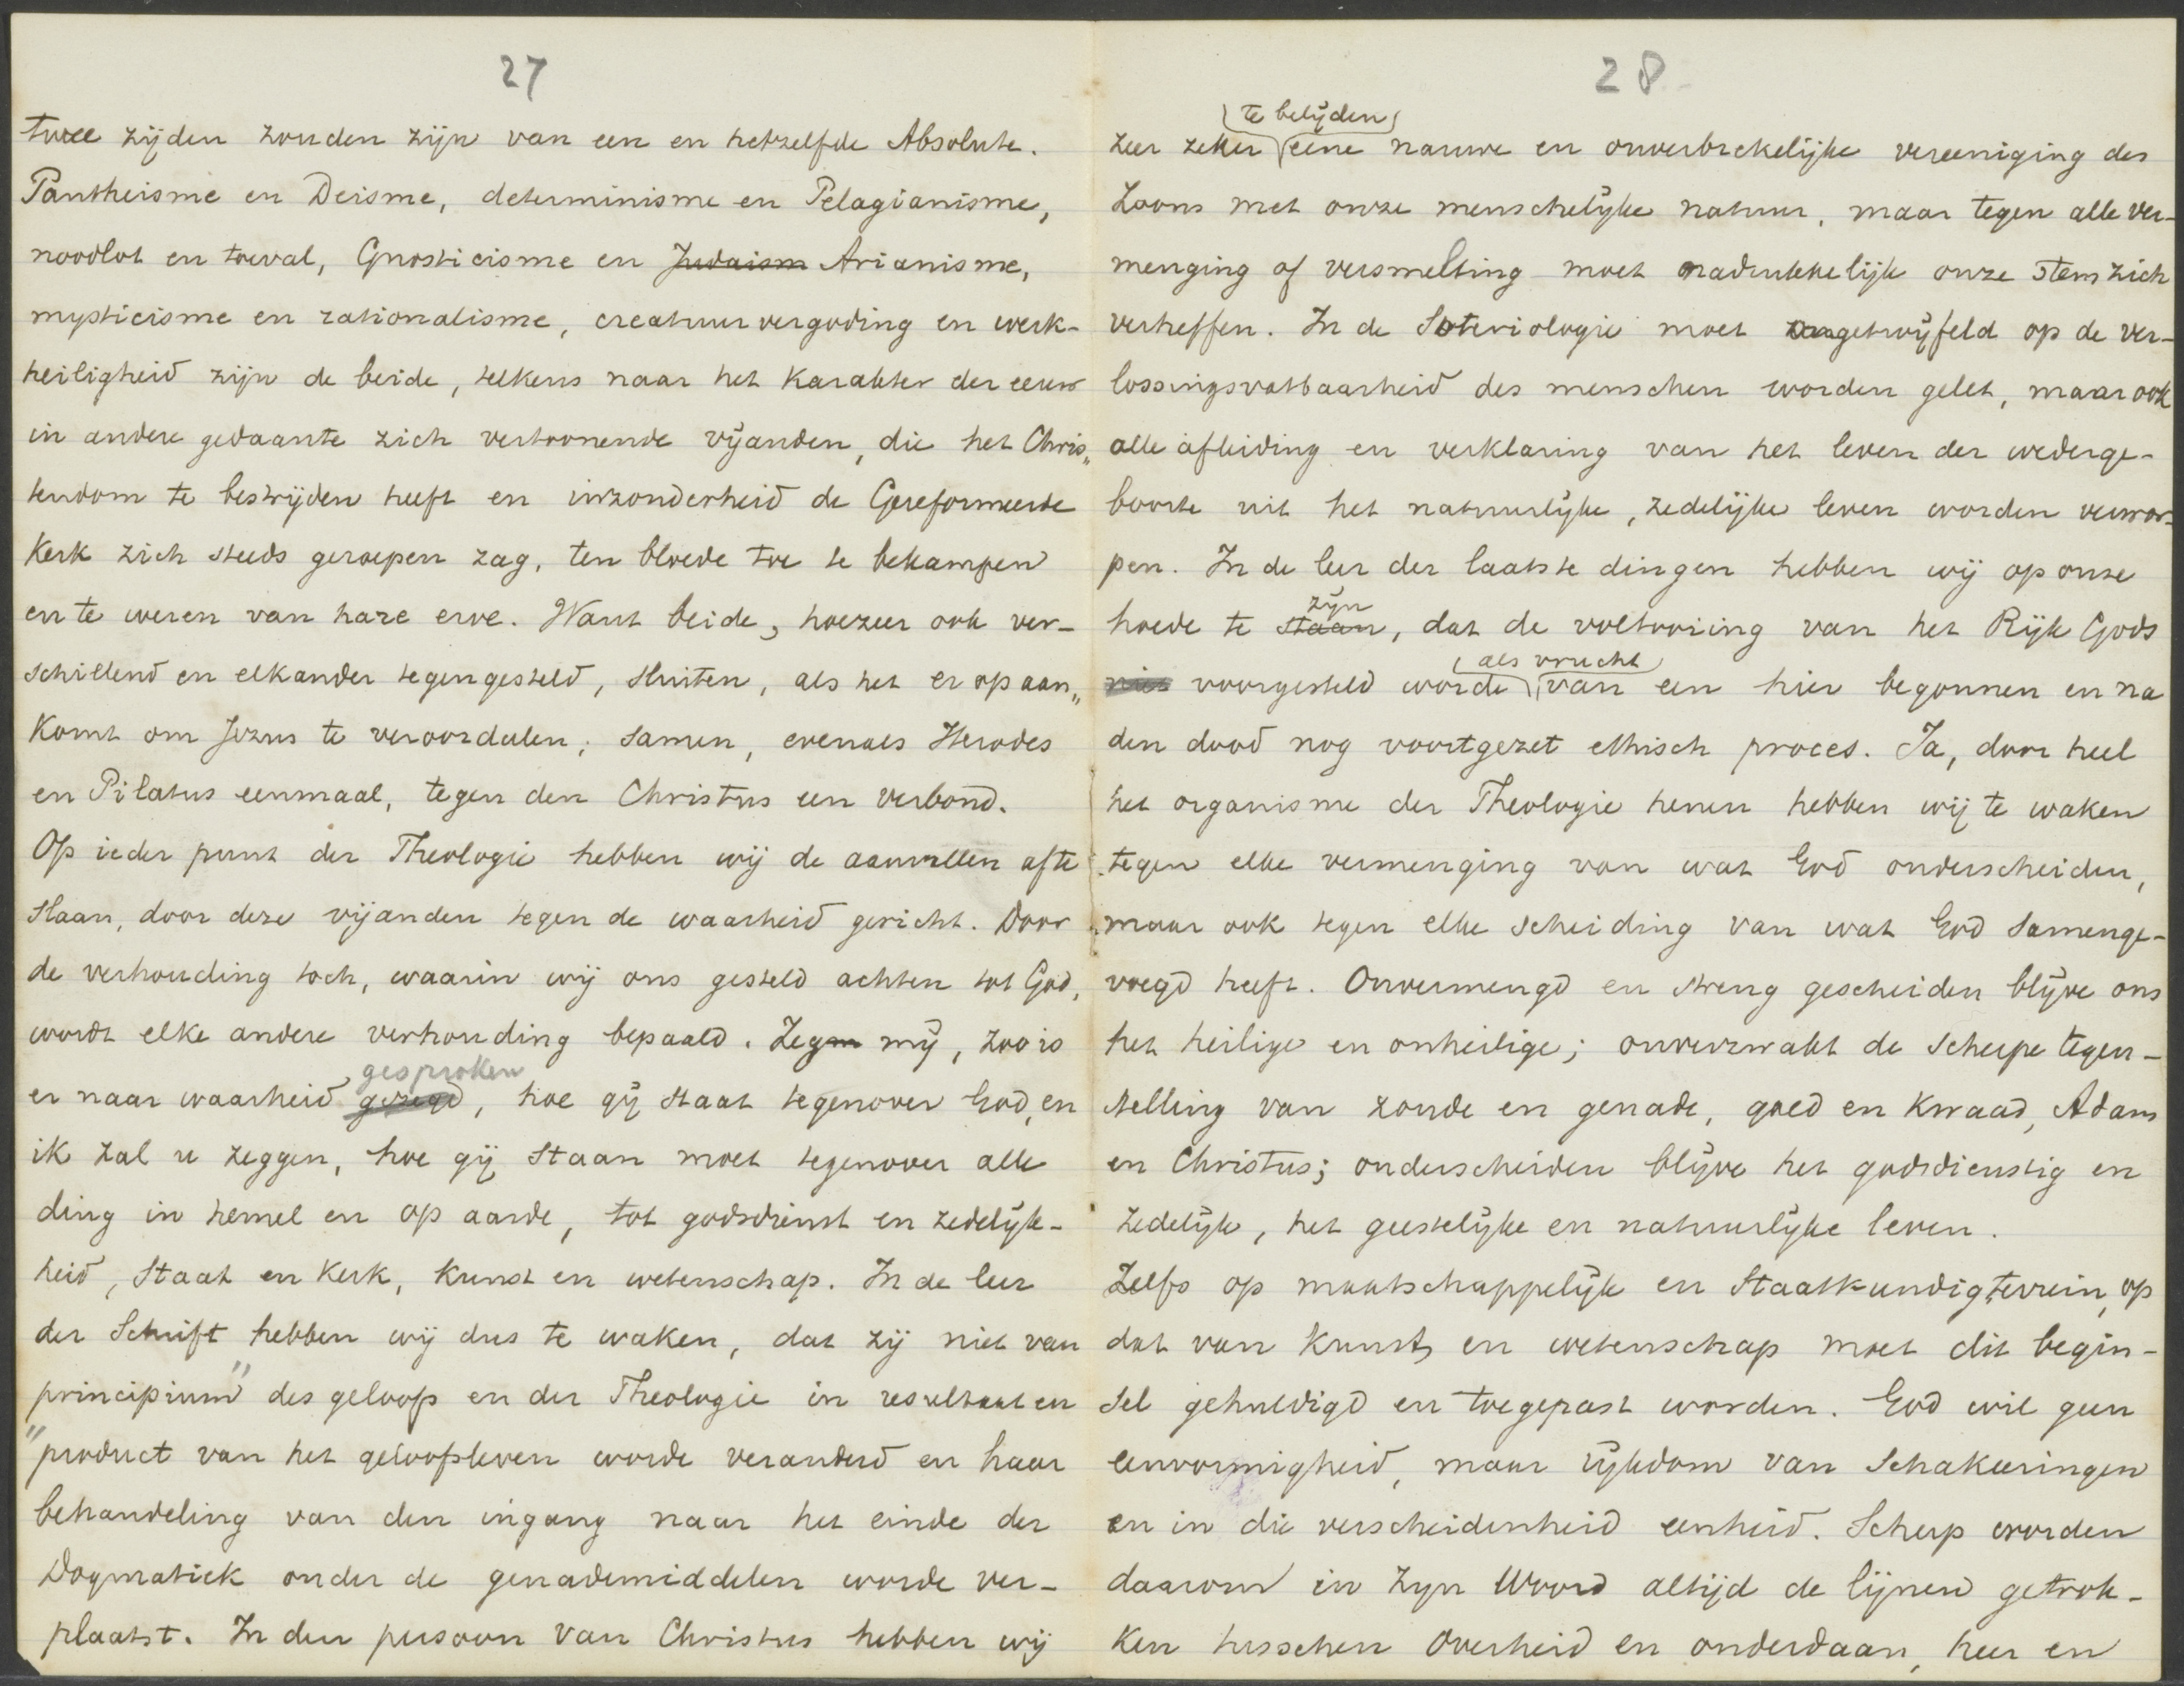 27
twee zijden zouden zijn van een en hetzelfde Absolute.
Pantheisme en Deisme, determinisme en Pelagianisme,
noodlot en toeval, Gnosticisme en Judaism Arianisme,
mysticisme en rationalisme, creatuurvergoding en werk-
heiligheid zijn de beide, telkens naar het karakter der eeuw
in andere gedaante zich vertoonende vijanden, die het Chris„
tendom te bestrijden heeft en inzonderheid de Gereformeerde
Kerk zich steeds geroepen zag, ten bloede toe te bekampen
en te weren van hare erve. Want beide, hoezeer ook ver-
schillend en elkander tegengesteld, sluiten, als het er op aan„
komt om Jezus te veroordeelen, samen, evenals Herodes
en Pilatus eenmaal, tegen den Christus een verbond.
Op ieder punt der Theologie hebben wij de aanvallen af te
slaan, door deze vijanden tegen de waarheid gericht. Door
de verhouding toch, waarin wij ons gesteld achten tot God,
wordt elke andere verhouding bepaald. Zeg mij, zoo is
gesproken
er naar waarheid gezegd, hoe gij staat tegenover God, en
ik zal u zeggen, hoe gij staan moet tegenover alle
ding in hemel en op aarde, tot godsdienst en zedelijk-
heid, Staat en Kerk, Kunst en wetenschap. In de leer
der Schrift hebben wij dus te waken, dat zij niet van
principium" des geloofs en der Theologie in resultaat en
"product van het geloofsleven worde veranderd en haar
behandeling van den ingang naar het einde der
Dogmatiek onder de genademiddelen worde ver-
plaatst. In den persoon van Christus hebben wij
28
te belijden
zeer zeker eene nauwe en onverbrekelijke vereeniging des
Zoons met onze menschelijke natuur, maar tegen alle ver-
menging of versmelting moet nadrukkelijk onze stem zich
verheffen. In de Soteriologie moet ongetwijfeld op de ver-
lossingsvatbaarheid des menschen worden gelet, maar ook
alle afleiding en verklaring van het leven der wederge-
boorte uit het natuurlijke, zedelijke leven worden verwor-
pen. In de leer der laatste dingen hebben wij op onze
zijn
hoede te staan, dat de voltooiing van het Rijk Gods
als vrucht
niet voorgesteld worde van een hier begonnen en na
den dood nog voortgezet ethisch proces. Ja, door heel
het organisme der Theologie henen hebben wij te waken
tegen elke vermenging van wat God onderscheiden,
maar ook tegen elke scheiding van wat God samenge-
voegd heeft. Onvermengd en streng gescheiden blijve ons
het heilige en onheilige; onverzwakt de scherpe tegen-
stelling van zonde en genade, goed en kwaad, Adam
en Christus; onderscheiden blijve het godsdienstig en
zedelijk, het geestelijke en natuurlijke leven.
Zelfs op maatschappelijk en Staatkundig terrein, op
dat van Kunst en wetenschap moet dit begin-
sel gehuldigd en toegepast worden. God wil geen
eenvormigheid, maar rijkdom van schakeeringen
en in die verscheidenheid eenheid. Scherp worden
daarom in zijn Woord altijd de lijnen getrok-
ken tusschen Overheid en onderdaan, heer en